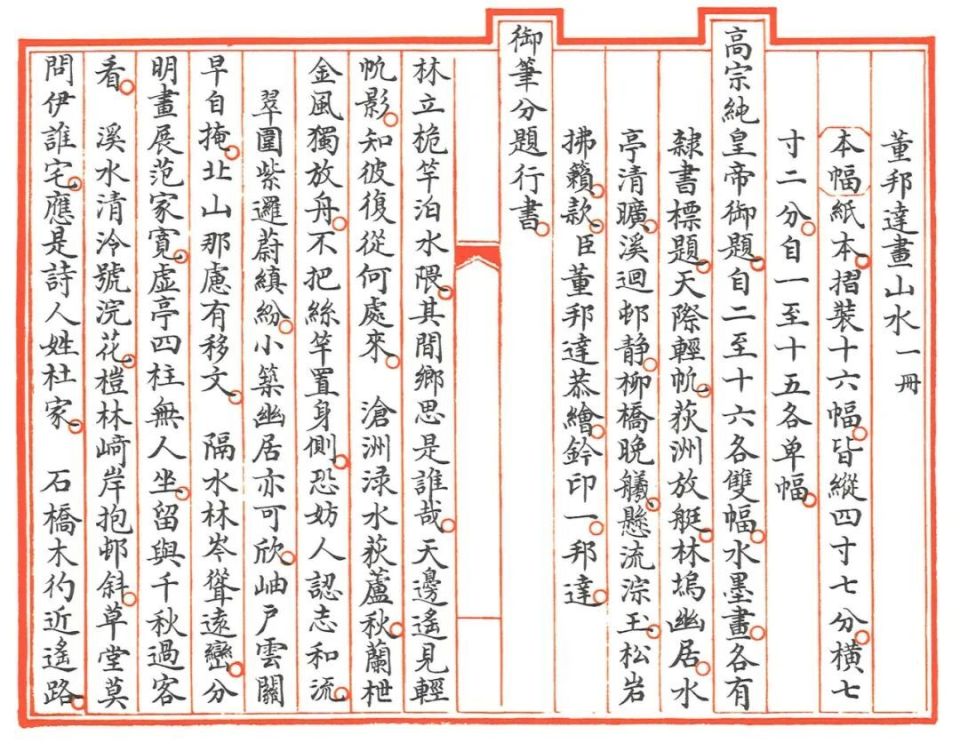 董邦達畫山水一冊
本幅紙本。摺裝十六幅。皆縱四寸七分。橫七
寸二分。自一至十五各单幅。
高宗純皇帝御題。自二至十六各雙幅。水墨畫。各有
隸書標題。天際輕帆。荻洲放艇。林塢幽居。水
亭清曠。溪迴邨静。柳橋晚艤。懸流淙玉。松岩
拂籟。款。臣董邦達恭繪。鈐印一。邦達。
御筆分題行書。
林立桅竿泊水隈。其間鄉思是誰哉。天邊遙見輕
帆影。知彼復從何處來。　滄洲淥水荻蘆秋。蘭枻
金風獨放舟。不把絲竿置身側。恐妨人認志和流。
翠圍紫邏蔚縝紛。小築幽居亦可欣。岫戶雲關
早自掩。北山那慮有移文。　隔水林岑聳遠巒。分
明畫展范家寬。虛亭四柱無人坐。留與千秋過客
看。　溪水清泠號浣花。榿林崎岸抱邨斜。草堂莫
問伊誰宅。應是詩人姓杜家。　石橋木彴近遙路。